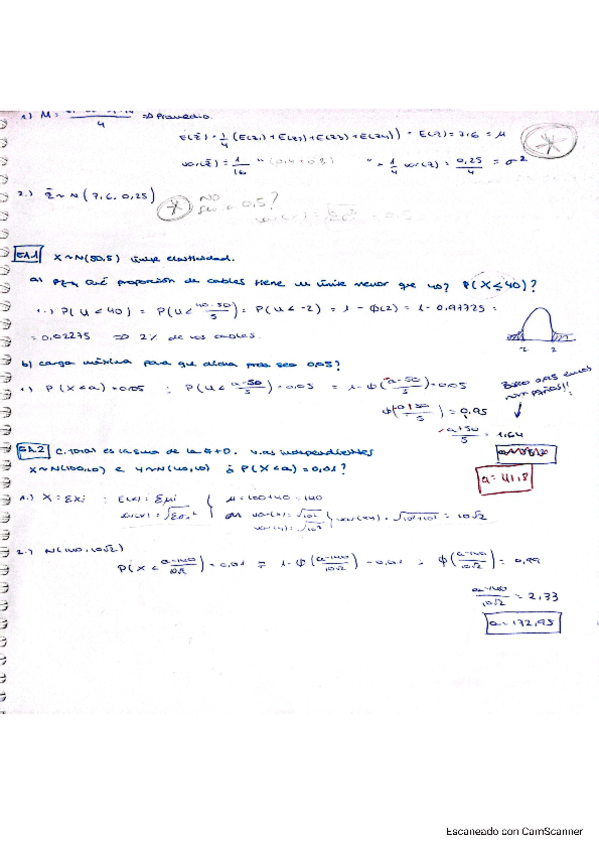 1) M = 4 => Promedio.
E(z̄) = 1/4 (E(z1)+E(z2)+E(z3)+E(z4)) = E(z) = 7,6 = μ
var(z̄) = 1/16 " " = 1/4 var(z) = 0,25/4 = σ²
2.) z̄ ~ N(7,6, 0,25) * NO 0,5?
E4.1 X ~ N(50,5) límite elasticidad.
a) Qué proporción de cables tiene un límite menor que 40? P(X ≤ 40)?
1.) P(u < 40) = P(u < 40-50/5) = P(u < -2) = 1 - Φ(2) = 1 - 0,97725 =
= 0,02275 => 2% de los cables.
-2 2
b) carga máxima para que prob sea 0,05?
1) P(X < a) = 0,05 ; P(u < a-50/5) = 0,05 = 1 - Φ(a-50/5) = 0,05
Busco 0,95
= 0,95
a+50/5 = 1,64
a = 41,8
E4.2 C. total es la suma de la G + D. v.as independientes
X ~ N(100,10) e Y ~ N(40,10) ¿ P(X < a) = 0,01?
1.) X = Σxi : E(x) = Σμi μ = 100+40 = 140
= 10√2
2.) N(140, 10√2)
P(X < a-140/10√2) = 0,01 = 1 - Φ(a-140/10√2) = 0,01 ; Φ(a-140/10√2) = 0,99
a-140/10√2 = 2,33
a = 172,95
Escaneado con CamScanner